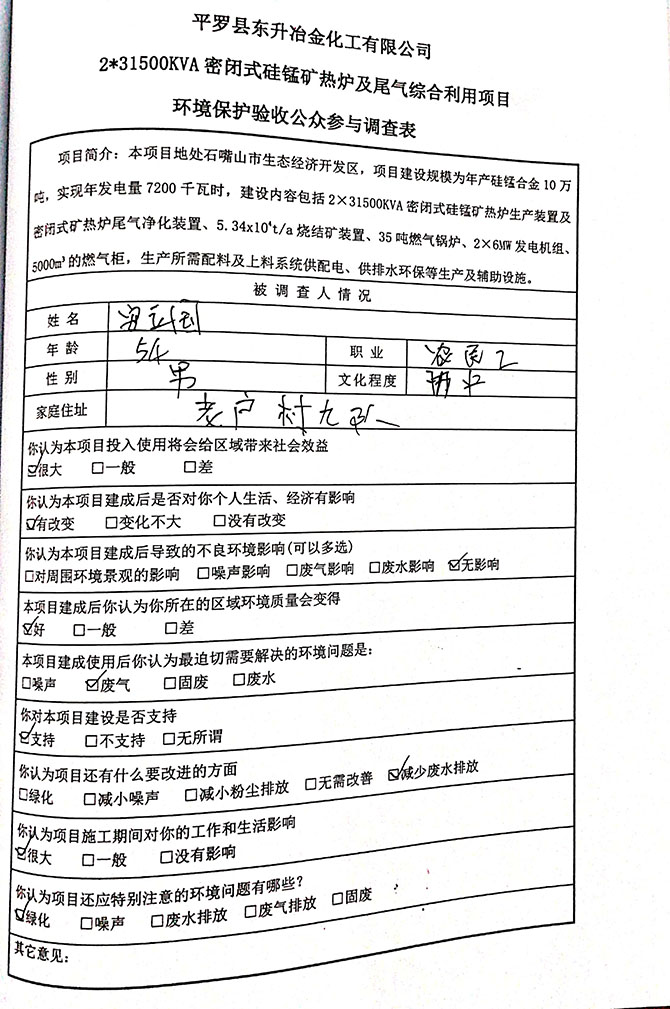 平罗县东升冶金化工有限公司
2*31500KVA 密闭式硅锰矿热炉及尾气综合利用项目
环境保护验收公众参与调查表
项目简介：本项目地处石嘴山市生态经济开发区，项目建设规模为年产硅锰合金 10 万
吨，实现年发电量 7200 千瓦时，建设内容包括 2×31500KVA 密闭式硅锰矿热炉生产装置及
密闭式矿热炉尾气净化装置、5.34x10⁴t/a 烧结矿装置、35 吨燃气锅炉、2×6MW 发电机组、
5000m³的燃气柜，生产所需配料及上料系统供配电、供排水环保等生产及辅助设施。
被调查人情况
姓名
年龄 54 职业 农民工
性别 男 文化程度 初中
家庭住址 老户村九队
你认为本项目投入使用将会给区域带来社会效益
☑很大 □一般 □差
你认为本项目建成后是否对你个人生活、经济有影响
☑有改变 □变化不大 □没有改变
你认为本项目建成后导致的不良环境影响(可以多选)
□对周围环境景观的影响 □噪声影响 □废气影响 □废水影响 ☑无影响
本项目建成后你认为你所在的区域环境质量会变得
☑好 □一般 □差
本项目建成使用后你认为最迫切需要解决的环境问题是：
□噪声 ☑废气 □固废 □废水
你对本项目建设是否支持
☑支持 □不支持 □无所谓
你认为项目还有什么要改进的方面
□绿化 □减小噪声 □减小粉尘排放 □无需改善 ☑减少废水排放
你认为项目施工期间对你的工作和生活影响
☑很大 □一般 □没有影响
你认为项目还应特别注意的环境问题有哪些？
☑绿化 □噪声 □废水排放 □废气排放 □固废
其它意见：